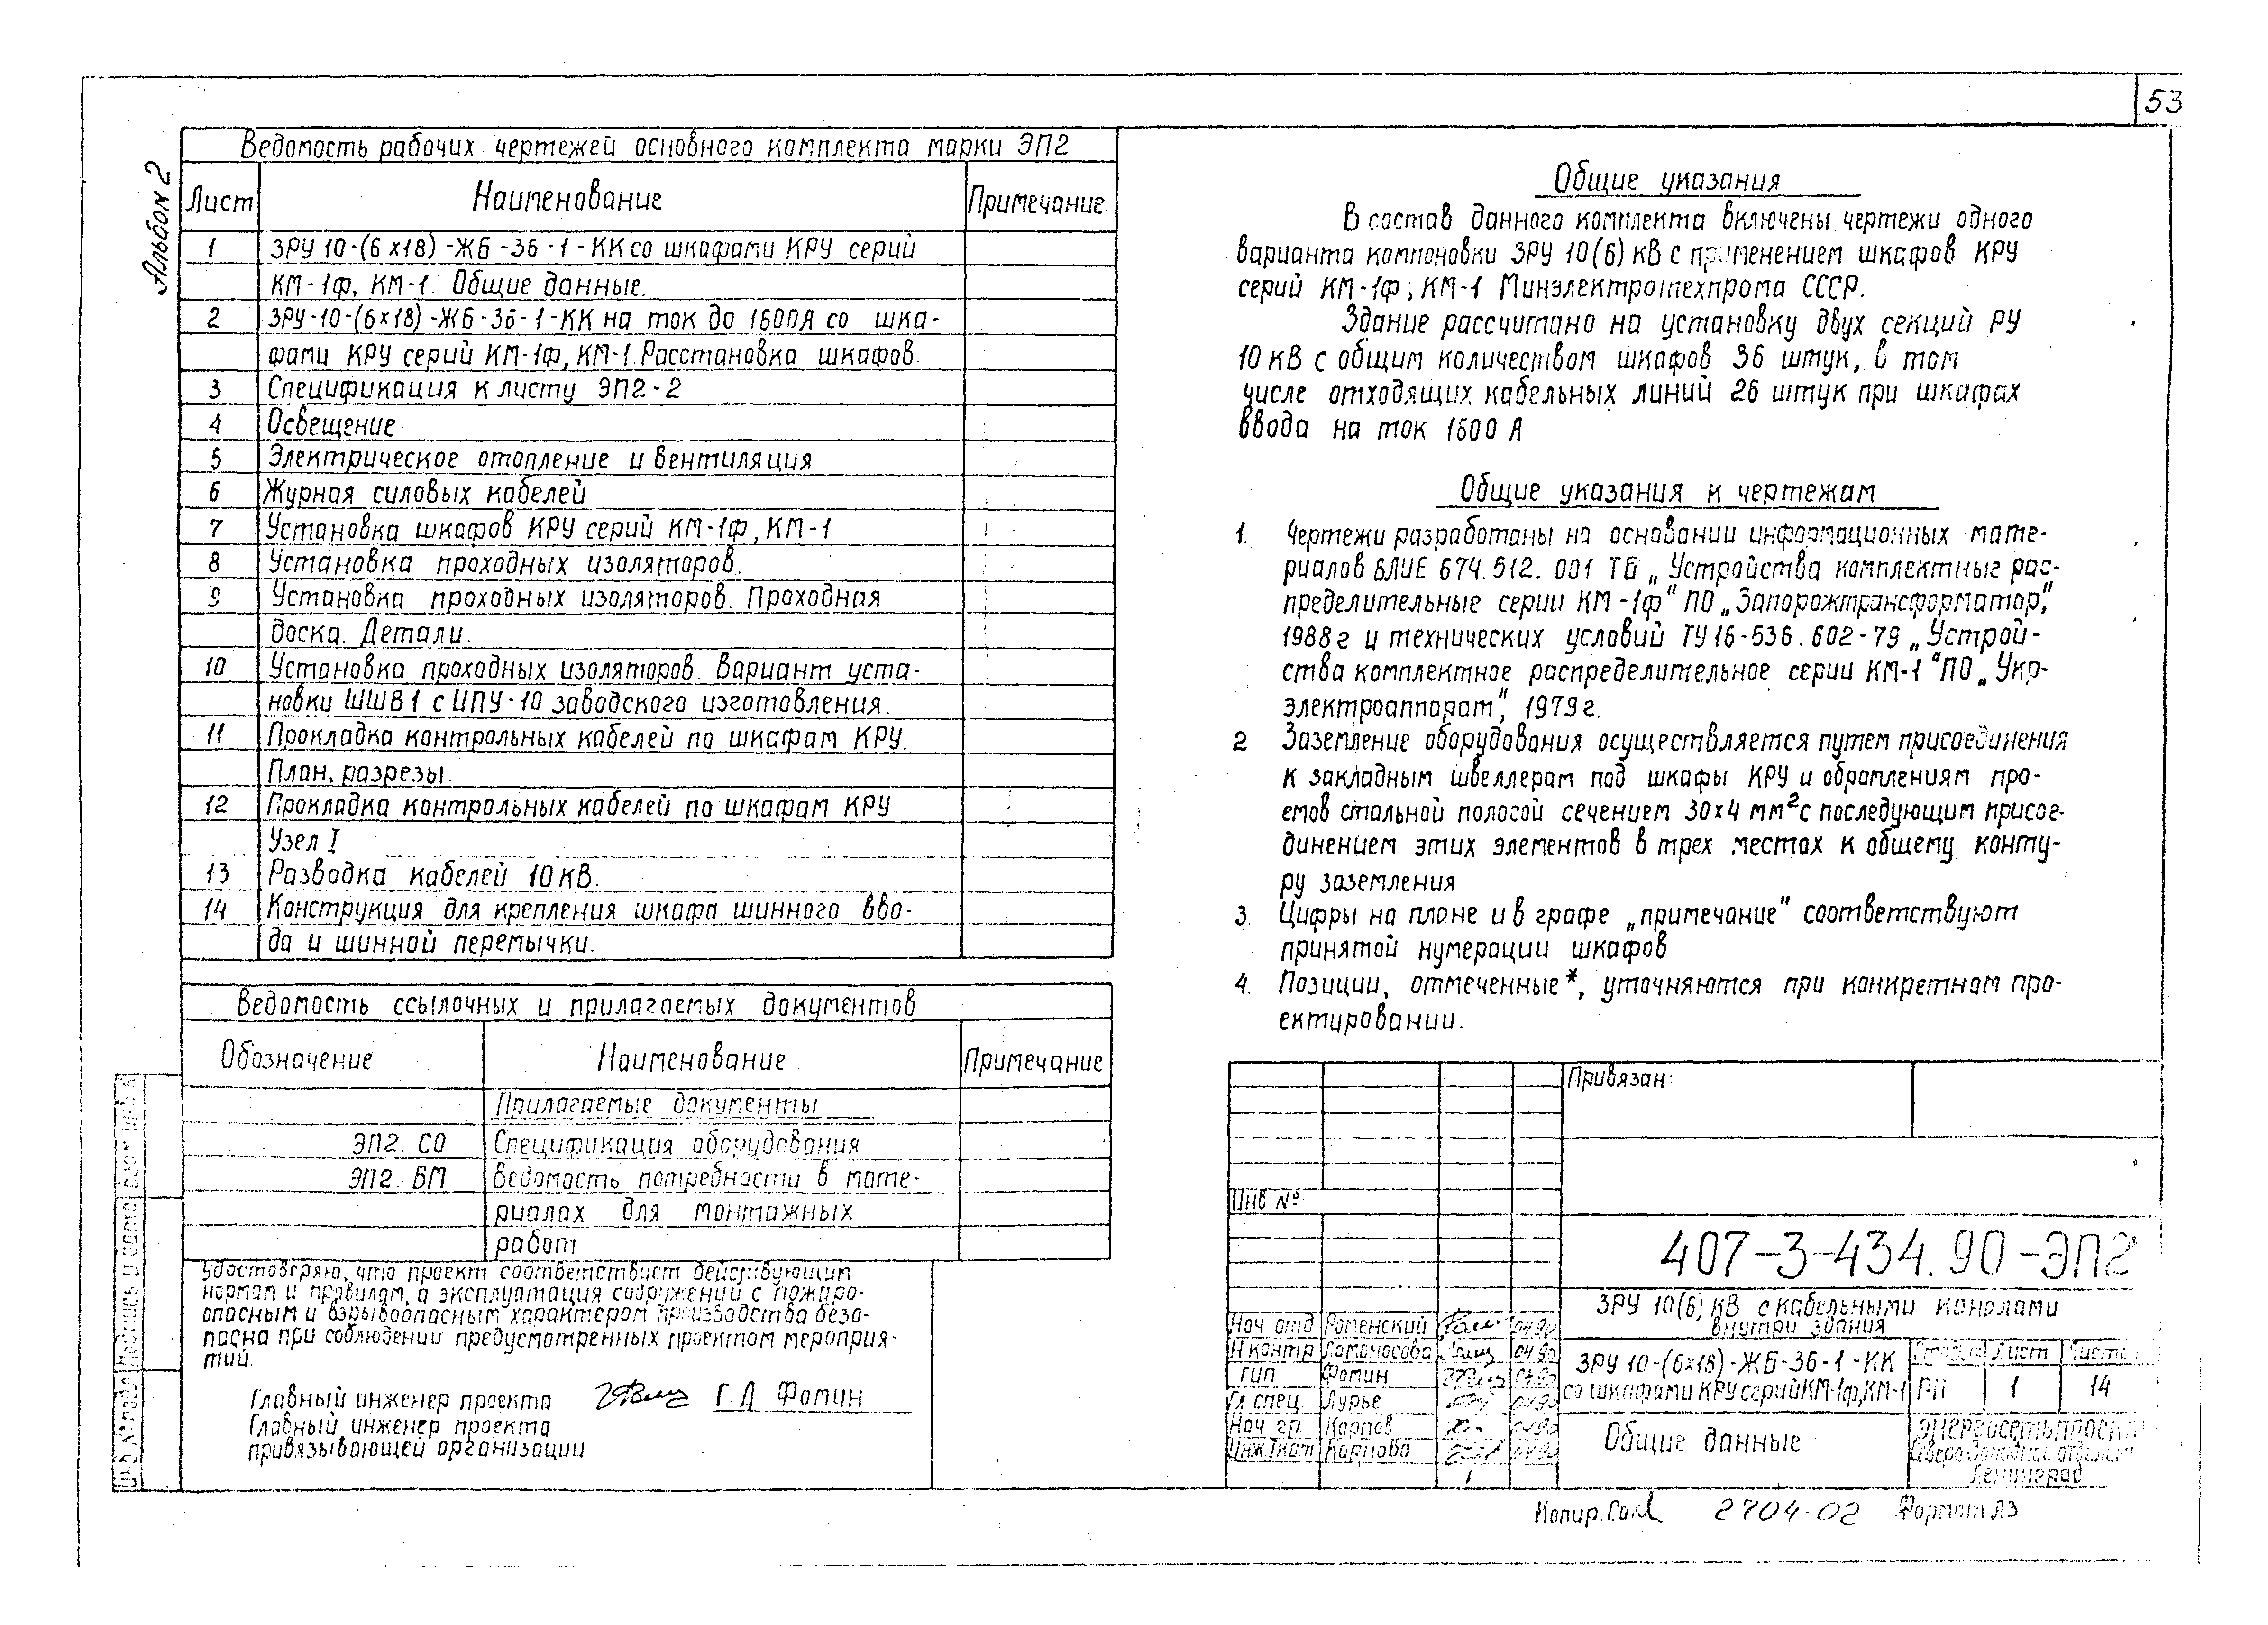 53
Альбом 2
Ведомость рабочих чертежей основного комплекта марки ЭП2
Лист Наименование Примечание
1 ЗРУ 10-(6х18)-ЖБ-36-1-КК со шкафами КРУ серий
КМ-1ф, КМ-1. Общие данные.
2 ЗРУ-10-(6х18)-ЖБ-36-1-КК на ток до 1600А со шка-
фами КРУ серий КМ-1ф, КМ-1. Расстановка шкафов.
3 Спецификация к листу ЭП2-2
4 Освещение
5 Электрическое отопление и вентиляция
6 Журнал силовых кабелей
7 Установка шкафов КРУ серий КМ-1ф, КМ-1
8 Установка проходных изоляторов.
9 Установка проходных изоляторов. Проходная
доска. Детали.
10 Установка проходных изоляторов. Вариант уста-
новки ШШВ1 с ИПУ-10 заводского изготовления.
11 Прокладка контрольных кабелей по шкафам КРУ.
План, разрезы.
12 Прокладка контрольных кабелей по шкафам КРУ
Узел I
13 Разводка кабелей 10кВ.
14 Конструкция для крепления шкафа шинного вво-
да и шинной перемычки.
Ведомость ссылочных и прилагаемых документов
Обозначение Наименование Примечание
Прилагаемые документы
ЭП2. СО Спецификация оборудования
ЭП2. ВМ Ведомость потребности в мате-
риалах для монтажных
работ
Удостоверяю, что проект соответствует действующим
нормам и правилам, а эксплуатация сооружений с пожаро-
опасным и взрывоопасным характером производства безо-
пасна при соблюдении предусмотренных проектом мероприя-
тий.
Главный инженер проекта Г.Д Фомин
Главный инженер проекта
привязывающей организации
Общие указания
В состав данного комплекта включены чертежи одного
варианта компоновки ЗРУ 10(6) кВ с применением шкафов КРУ
серий КМ-1ф; КМ-1 Минэлектротехпрома СССР.
Здание рассчитано на установку двух секций РУ
10кВ с общим количеством шкафов 36 штук, в том
числе отходящих кабельных линий 26 штук при шкафах
ввода на ток 1600 А
Общие указания к чертежам
1. Чертежи разработаны на основании информационных мате-
риалов 674.512.001 „Устройства комплектные рас-
пределительные серии КМ-1ф" ПО „Запорожтрансформатор",
1988г и технических условий ТУ16-536.602-79 „Устрой-
ства комплектное распределительное серии КМ-1" ПО „Укр-
электроаппарат", 1979г.
2 Заземление оборудования осуществляется путем присоединения
к закладным швеллерам под шкафы КРУ и обрамлениям про-
емов стальной полосой сечением 30х4 мм² с последующим присое-
динением этих элементов в трех местах к общему конту-
ру заземления
3. Цифры на плане и в графе „примечание" соответствуют
принятой нумерации шкафов
4. Позиции, отмеченные*, уточняются при конкретном про-
ектировании.
Привязан:
Инв №
407-3-434.90-ЭП2
ЗРУ 10(6) кВ с кабельными каналами
внутри здания
Нач. отд. Роменский 04.90
Н контр Ломоносова 04.90
ГИП Фомин 04.90
Гл спец. Лурье 04.90
Нач. гр. Карпов 04.90
Инж Iкат Карпова 04.90
ЗРУ 10-(6х18)-ЖБ-36-1-КК
со шкафами КРУ серий КМ-1ф, КМ-1
Стадия Лист Листов
РП 1 14
Общие данные
ЭНЕРГОСЕТЬПРОЕКТ
Северо-Западное отделение
Ленинград
Копир. 2704-02 Формат А3
Взам инв.
Подпись и дата
Инв. № подл